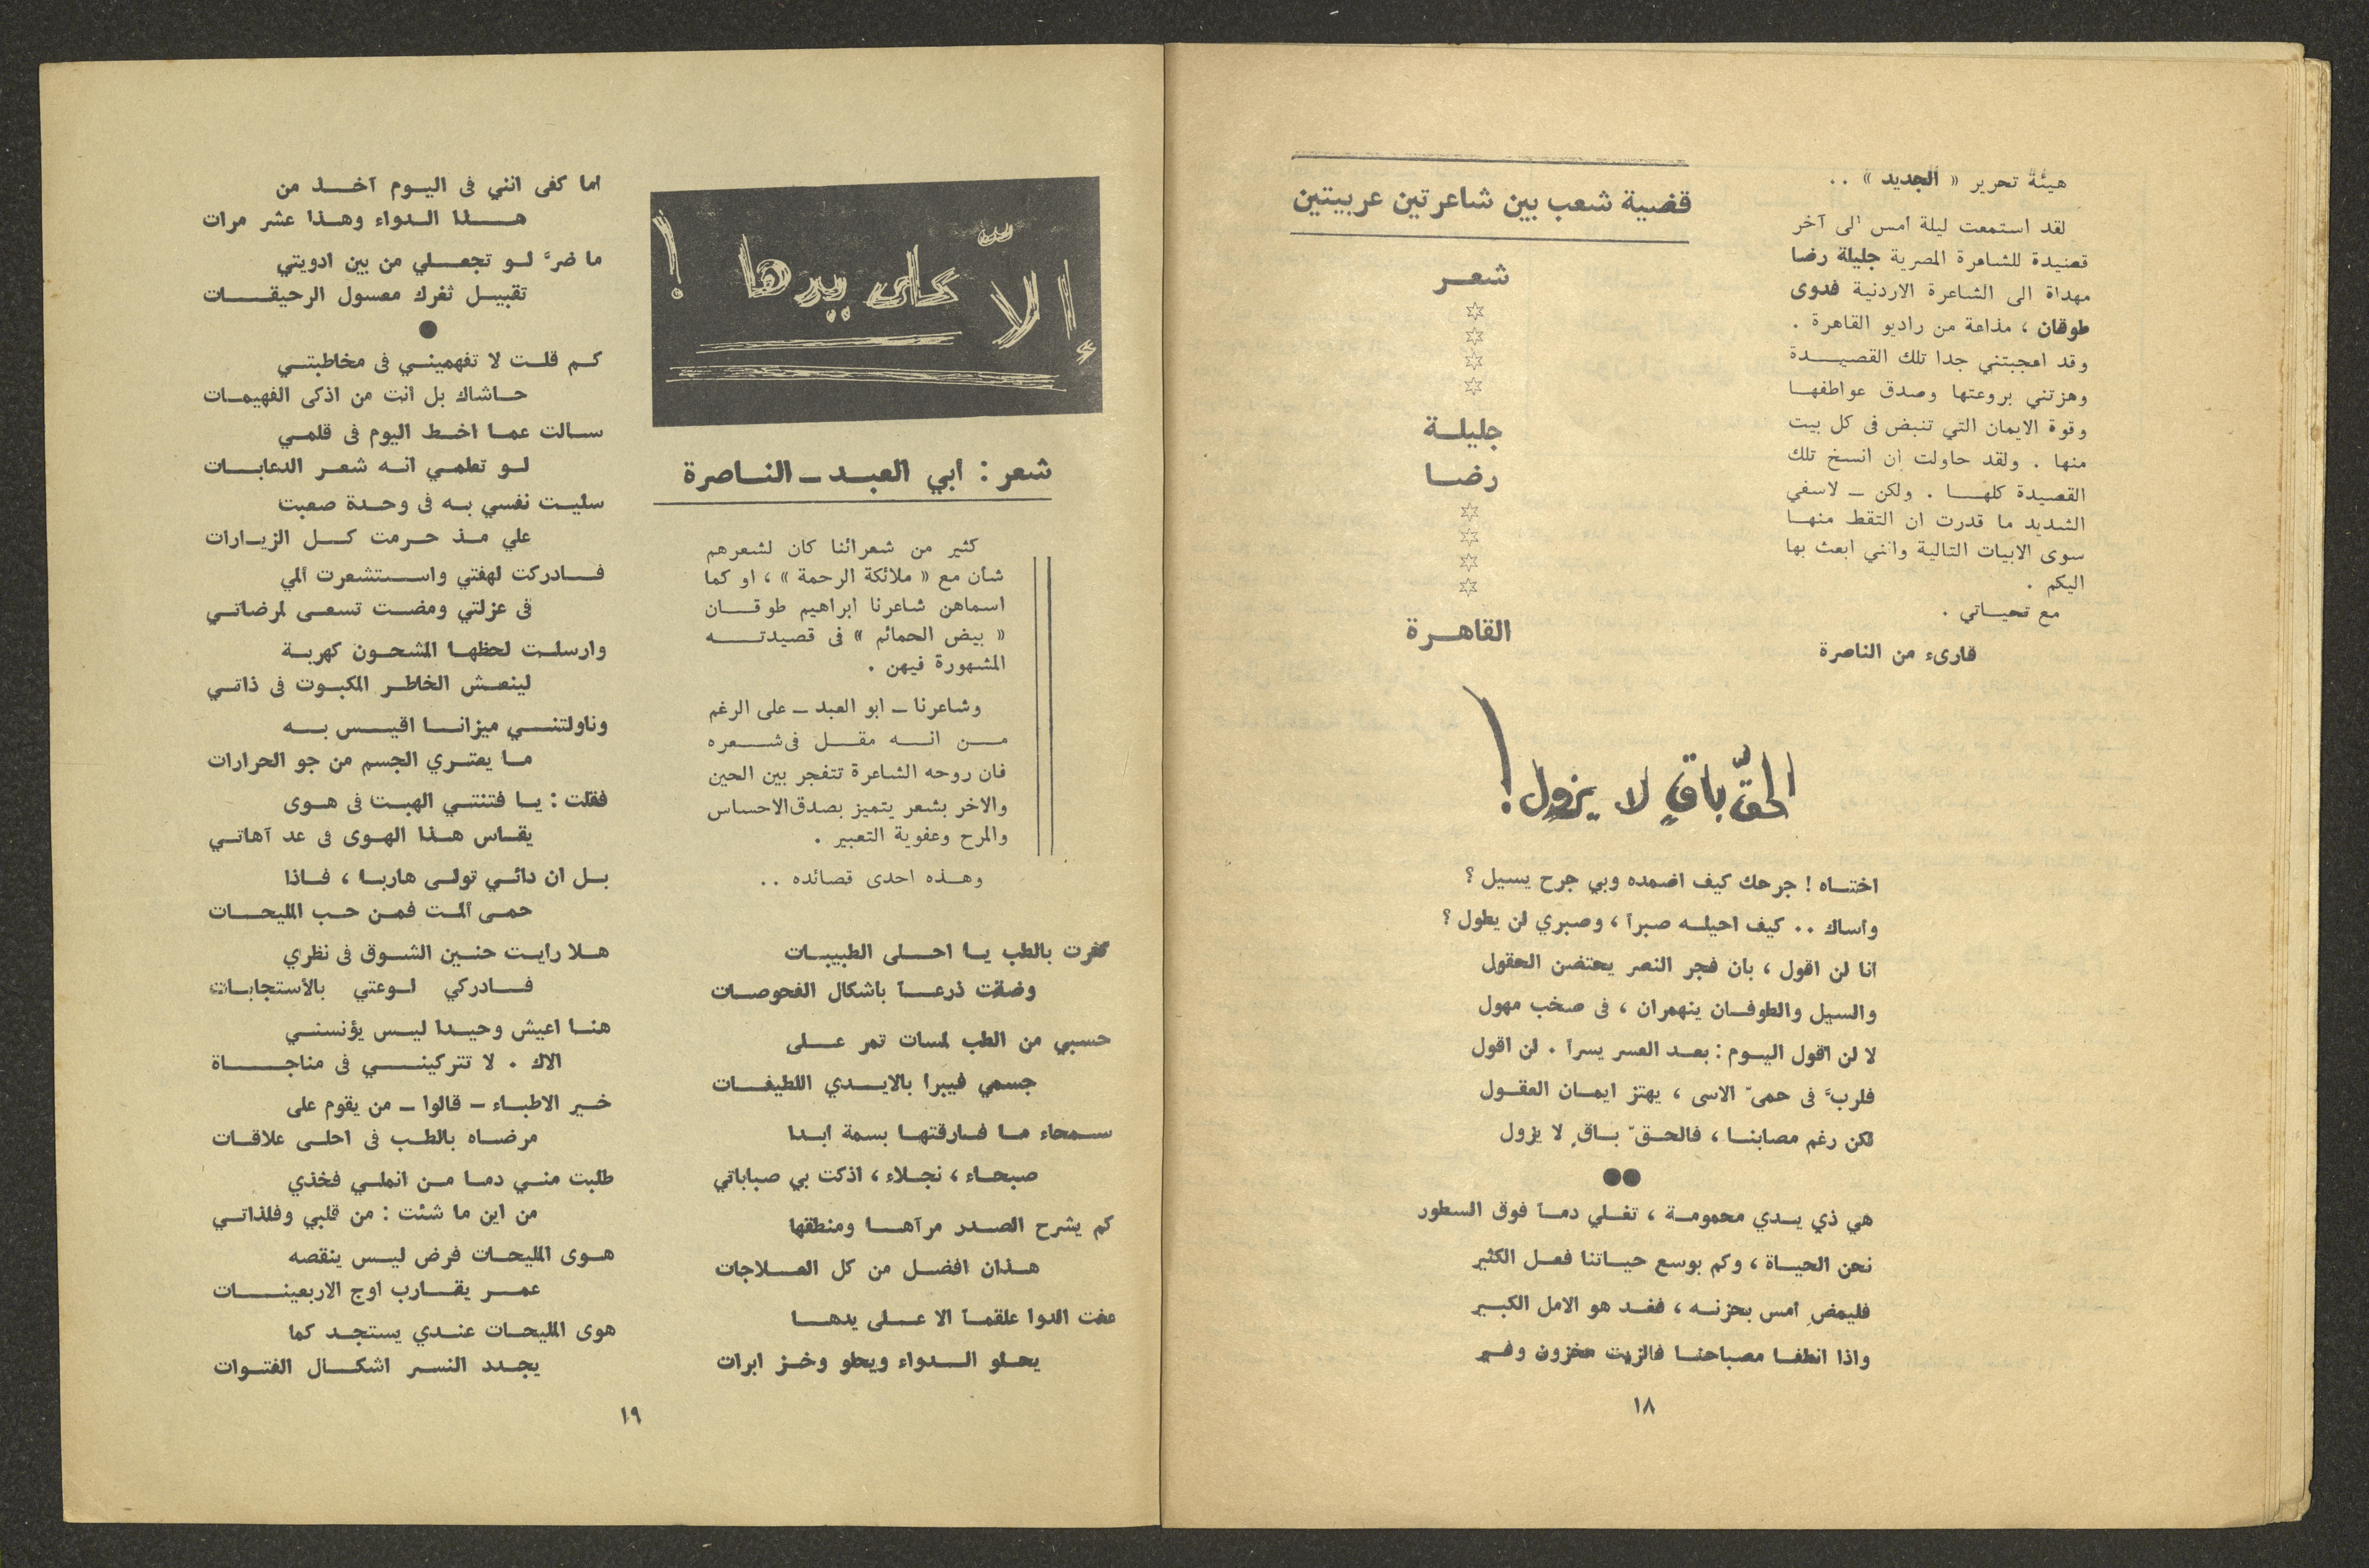 هيئة تحرير « الجديد » ..
لقد استمعت ليلة امس الى آخر
قصيدة للشاعرة المصرية جليلة رضا
مهداة الى الشاعرة الاردنية فدوى
طوقان ، مذاعة من راديو القاهرة .
وقد اعجبتني جدا تلك القصيدة
وهزتني بروعتها وصدق عواطفها
وقوة الايمان التي تنبض فى كل بيت
منها . ولقد حاولت ان انسخ تلك
القصيدة كلها . ولكن ــ لاسفي
الشديد ما قدرت ان التقط منها
سوى الابيات التالية وانني ابعث بها
اليكم .
مع تحياتي .
قارىء من الناصرة
قضية شعب بين شاعرتين عربيتين
شعر
جليلة
رضا
القاهرة
الحقّ باقٍ لا يزول !
اختاه ! جرحك كيف اضمده وبي جرح يسيل ؟
واساك .. كيف احيله صبراً ، وصبري لن يطول ؟
انا لن اقول ، بان فجر النصر يحتضن الحقول
والسيل والطوفان ينهمران ، فى صخب مهول
لا لن اقول اليوم : بعد العسر يسراً . لن اقول
فلربَّ فى حمىّ الاسى ، يهتز ايمان العقول
لكن رغم مصابنا ، فالحقّ باقٍ لا يزول
هي ذي يدي محمومة ، تغلي دماً فوق السطور
نحن الحياة ، وكم بوسع حياتنا فعل الكثير
فليمضِ امس بحزنه ، فغد هو الامل الكبير
واذا انطفا مصباحنا فالزيت مخزون وفير
١٨
إلاّ على يدها !
شعر : أبي العبد ــ الناصرة
كثير من شعرائنا كان لشعرهم
شأن مع « ملائكة الرحمة » ، او كما
اسماهن شاعرنا ابراهيم طوقان
« بيض الحمائم » فى قصيدته
المشهورة فيهن .
وشاعرنا ــ ابو العبد ــ على الرغم
من انه مقل فى شعره
فان روحه الشاعرة تتفجر بين الحين
والاخر بشعر يتميز بصدق الاحساس
والمرح وعفوية التعبير .
وهذه احدى قصائده ..
كفرت بالطب يا احلى الطبيبات
وضقت ذرعاً باشكال الفحوصات
حسبي من الطب لمسات تمر على
جسمي فيبرا بالايدي اللطيفات
سمحاء ما فارقتها بسمة ابدا
صبحاء ، نجلاء ، اذكت بي صباباتي
كم يشرح الصدر مرآها ومنطقها
هذان افضل من كل العلاجات
عفت الدوا علقماً الا على يدها
يحلو الدواء ويحلو وخز ابرات
اما كفى انني فى اليوم آخذ من
هذا الدواء وهذا عشر مرات
ما ضرَّ لو تجعلي من بين ادويتي
تقبيل ثغرك معسول الرحيقات
كم قلت لا تفهميني فى مخاطبتي
حاشاك بل انت من اذكى الفهيمات
سالت عما اخط اليوم فى قلمي
لو تعلمي انه شعر الدعابات
سليت نفسي به فى وحدة صعبت
علي مذ حرمت كل الزيارات
فادركت لهفتي واستشعرت ألمي
فى عزلتي ومضت تسعى لمرضاتي
وارسلت لحظها المشحون كهربة
لينعش الخاطر المكبوت فى ذاتي
وناولتني ميزانا اقيس به
ما يعتري الجسم من جو الحرارات
فقلت : يا فتنتي الهبت فى هوى
يقاس هذا الهوى فى عد آهاتي
بل ان دائي تولى هاربا ، فاذا
حمى ألمت فمن حب المليحات
هلا رايت حنين الشوق فى نظري
فادركي لوعتي بالأستجابات
هنا اعيش وحيدا ليس يؤنسني
الاك . لا تتركيني فى مناجاة
خير الاطباء ــ قالوا ــ من يقوم على
مرضاه بالطب فى احلى علاقات
طلبت مني دما من انملي فخذي
من اين ما شئت : من قلبي وفلذاتي
هوى المليحات فرض ليس ينقصه
عمر يقارب اوج الاربعينات
هوى المليحات عندي يستجد كما
يجدد النسر اشكال الفتوات
١٩